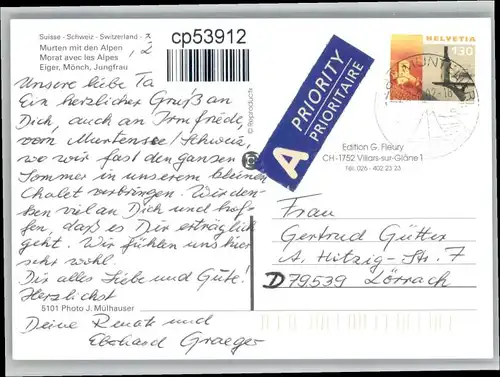 Suisse - Schweiz - Switzerland -
Murten mit den Alpen
Morat avec les Alpes
Eiger, Mönch, Jungfrau
cp53912
Unsere liebe Ta
Ein herzlicher Gruß an
Dich, auch an Irmfriede,
vom Murtensee / Schweiz,
wo wir fast den ganzen
Sommer in unserem kleinen
Chalet verbringen. Wir den-
ken viel an Dich und hof-
fen, daß es Dir erträglich
geht. Wir fühlen uns hier
sehr wohl.
Dir alles Liebe und Gute!
Herzlichst
5101 Photo J. Mülhauser
Deine Renate und
Eberhard Graeger
© Reproducta
A PRIORITY
PRIORITAIRE
HELVETIA
130
Edition G. Fleury
CH-1752 Villars-sur-Glâne 1
Tél. 026 - 402 23 23
Frau
Gertrud Gütter
A. Hitzig-Str. 7
D 79539 Lörrach